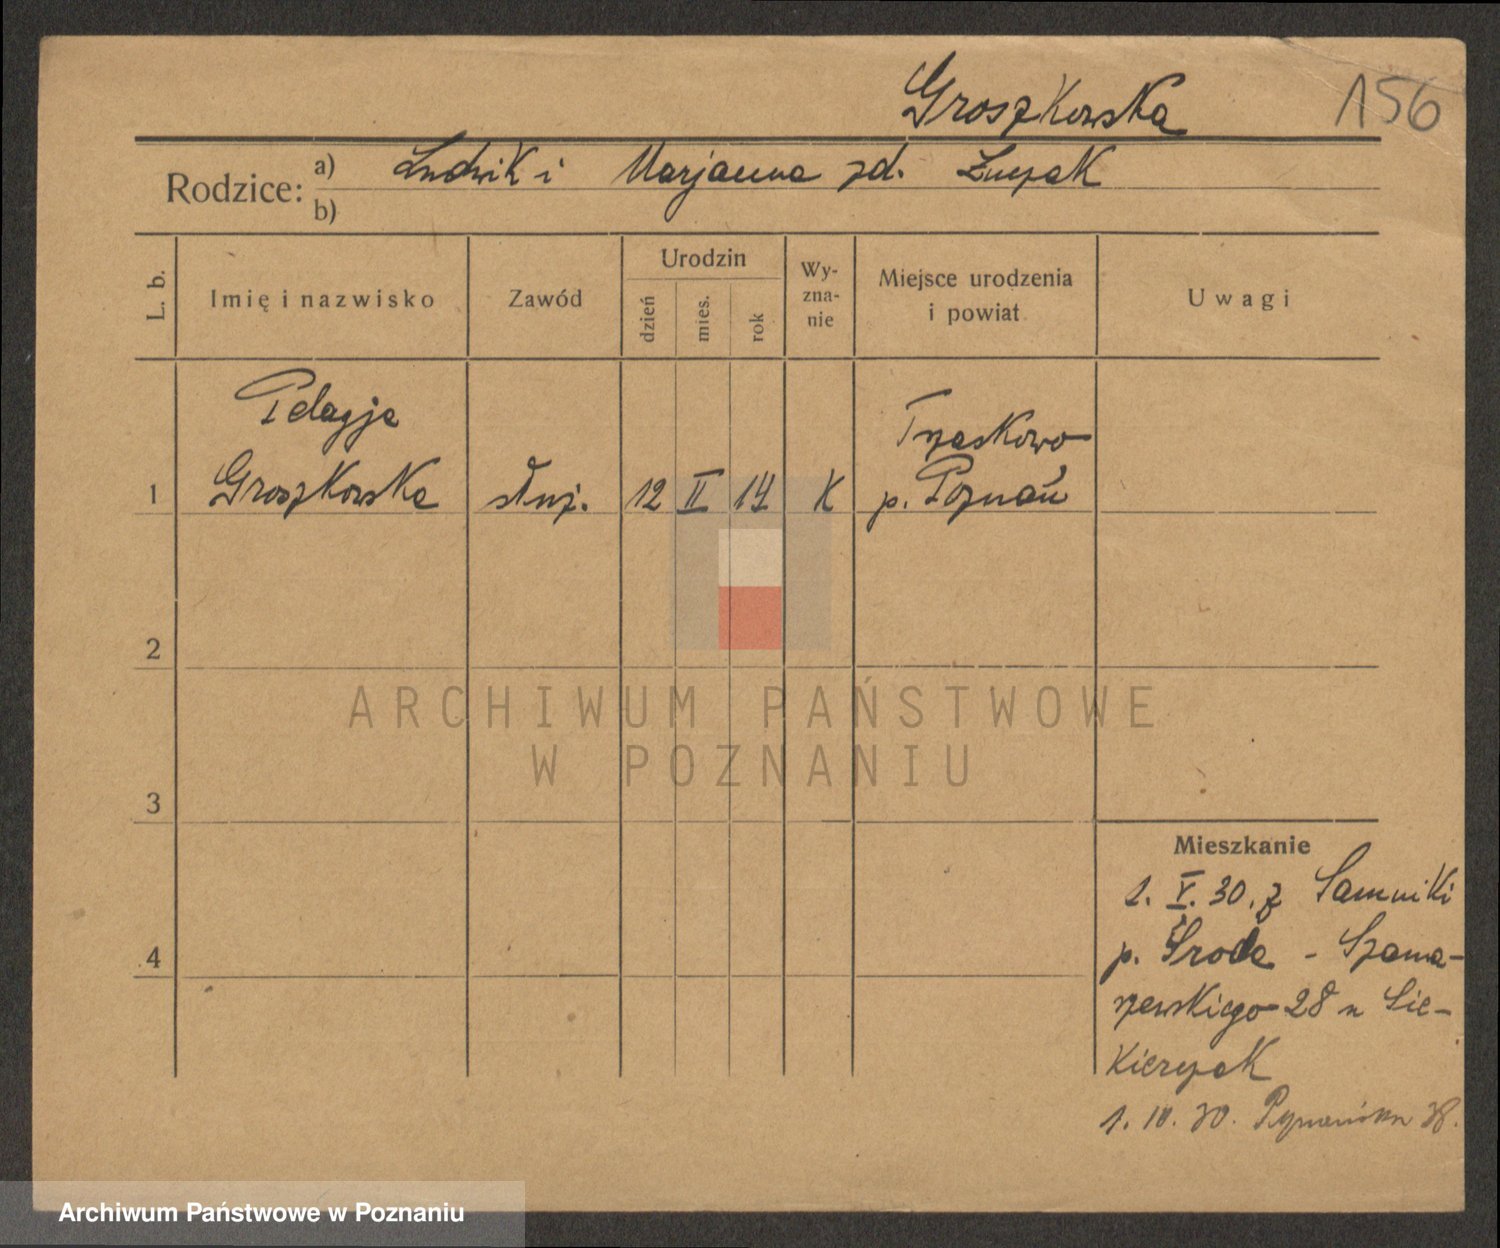 Groszkowska
156
Rodzice:
a) Ludwik i Marjanna zd.
b)
L. b.
Imię i nazwisko
Zawód
Urodzin
dzień
mies.
rok
Wy-
zna-
nie
Miejsce urodzenia
i powiat
Uwagi
Pelagja
Trzaskowo
1 Groszkowska służ. 12 II 14 K p. Poznań
2
ARCHIWUM PAŃSTWOWE
W POZNANIU
3
Mieszkanie
1. V. 30. z
4
p. Środa - Szama-
rzewskiego 28 u Sie-
kierzak
1. 10. 30.
Archiwum Państwowe w Poznaniu